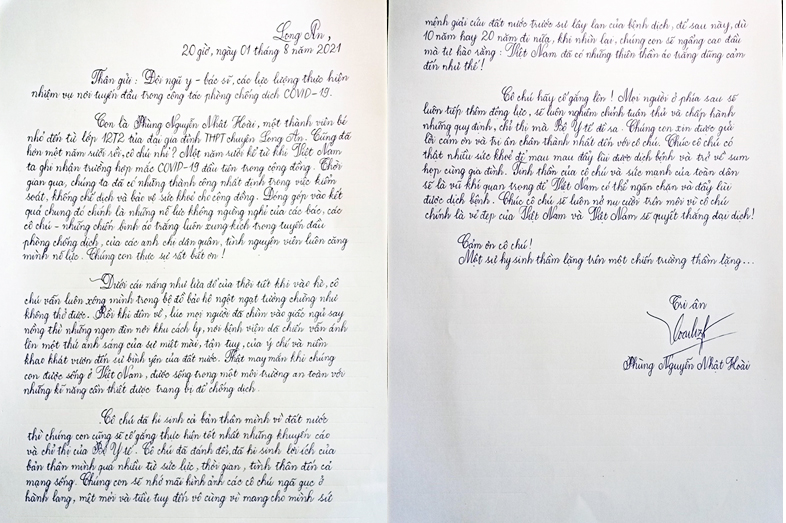 Long An,
20 giờ, ngày 01 tháng 8 năm 2021
Thân gửi: Đội ngũ y - bác sĩ, các lực lượng thực hiện
nhiệm vụ nơi tuyến đầu trong công tác phòng chống dịch COVID-19.
Con là Phùng Nguyễn Nhật Hoài, một thành viên bé
nhỏ đến từ lớp 12T2 của đại gia đình THPT chuyên Long An. Cũng đã
hơn một năm rưỡi rồi, cô chú nhỉ? Một năm rưỡi kể từ khi Việt Nam
ta ghi nhận trường hợp mắc COVID-19 đầu tiên trong cộng đồng. Thời
gian qua, chúng ta đã có những thành công nhất định trong việc kiểm
soát, khống chế dịch và bảo vệ sức khoẻ cho cộng đồng. Đóng góp vào kết
quả chung đó chính là những nỗ lực không ngừng nghỉ của các bác, các
cô chú - những chiến binh áo trắng luôn xung kích trong tuyến đầu
phòng chống dịch, của các anh chị dân quân, tình nguyện viên luôn căng
mình nỗ lực. Chúng con thực sự rất biết ơn!
Dưới cái nắng như lửa đổ của thời tiết khi vào hè, cô
chú vẫn luôn xông mình trong bộ đồ bảo hộ ngột ngạt tưởng chừng như
không thở được. Rồi khi đêm về, lúc mọi người đã chìm vào giấc ngủ say
nồng thì những ngọn đèn nơi khu cách ly, nơi bệnh viện dã chiến vẫn ánh
lên một thứ ánh sáng của sự miệt mài, tận tụy, của ý chí và niềm
khao khát vươn đến sự bình yên của đất nước. Thật may mắn khi chúng
con được sống ở Việt Nam, được sống trong một môi trường an toàn với
những kĩ năng cần thiết được trang bị để chống dịch.
Cô chú đã hi sinh cả bản thân mình vì đất nước
thì chúng con cũng sẽ cố gắng thực hiện tốt nhất những khuyến cáo
và chỉ thị của Bộ Y tế. Cô chú đã đánh đổi, đã hi sinh lợi ích của
bản thân mình quá nhiều từ sức lực, thời gian, tinh thần đến cả
mạng sống. Chúng con sẽ nhớ mãi hình ảnh các cô chú ngã gục ở
hành lang, mệt mỏi và tiều tụy đến vô cùng vì mang cho mình sứ
mệnh giải cứu đất nước trước sự lây lan của bệnh dịch, để sau này, dù
10 năm hay 20 năm đi nữa, khi nhìn lại, chúng con sẽ ngẩng cao đầu
mà tự hào rằng: Việt Nam đã có những thiên thần áo trắng dũng cảm
đến như thế!
Cô chú hãy cố gắng lên! Mọi người ở phía sau sẽ
luôn tiếp thêm động lực, sẽ luôn nghiêm chỉnh tuân thủ và chấp hành
những quy định, chỉ thị mà Bộ Y tế đề ra. Chúng con xin được gửi
lời cảm ơn và tri ân chân thành nhất đến với cô chú. Chúc cô chú có
thật nhiều sức khoẻ để mau mau đẩy lùi được dịch bệnh và trở về sum
họp cùng gia đình. Tinh thần của cô chú và sức mạnh của toàn dân
sẽ là vũ khí quan trọng để Việt Nam có thể ngăn chặn và đẩy lùi
được dịch bệnh. Chúc cô chú sẽ luôn nở nụ cười trên môi vì cô chú
chính là vẻ đẹp của Việt Nam và Việt Nam sẽ quyết thắng đại dịch!
Cảm ơn cô chú!
Một sự hy sinh thầm lặng trên một chiến trường thầm lặng...
Tri ân
Phùng Nguyễn Nhật Hoài